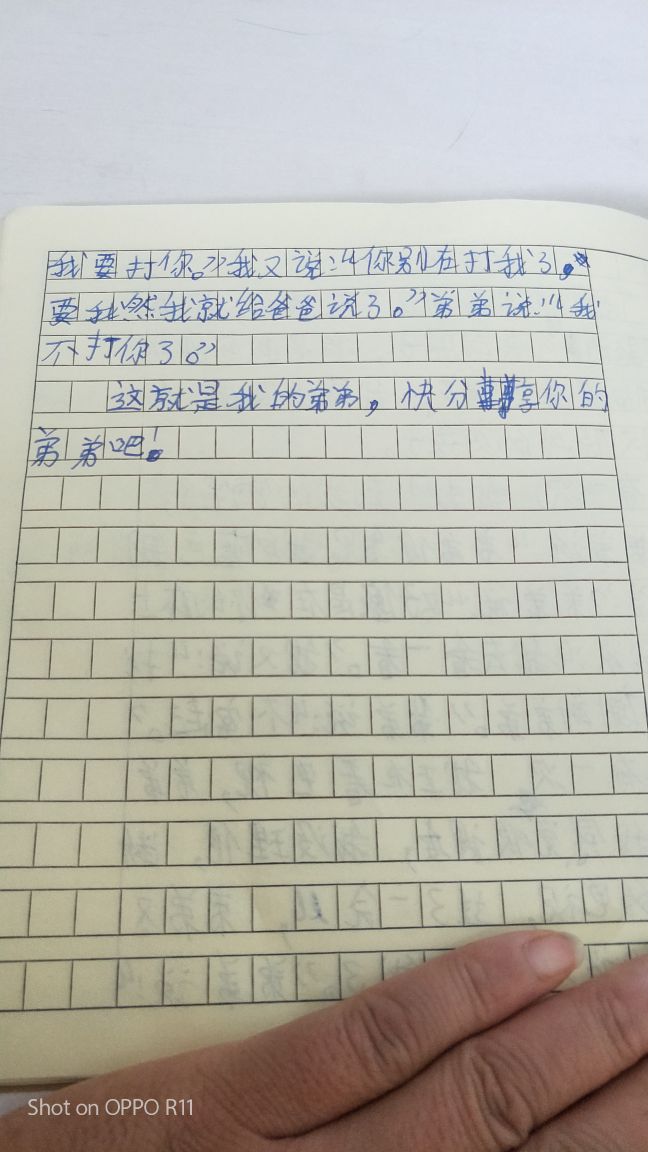 我要打你。”我又说：“你别在打我了。
要我然我就给爸爸说了。”弟弟说：“我
不打你了。”
这就是我的弟弟，快分享你的
弟弟吧！
Shot on OPPO R11